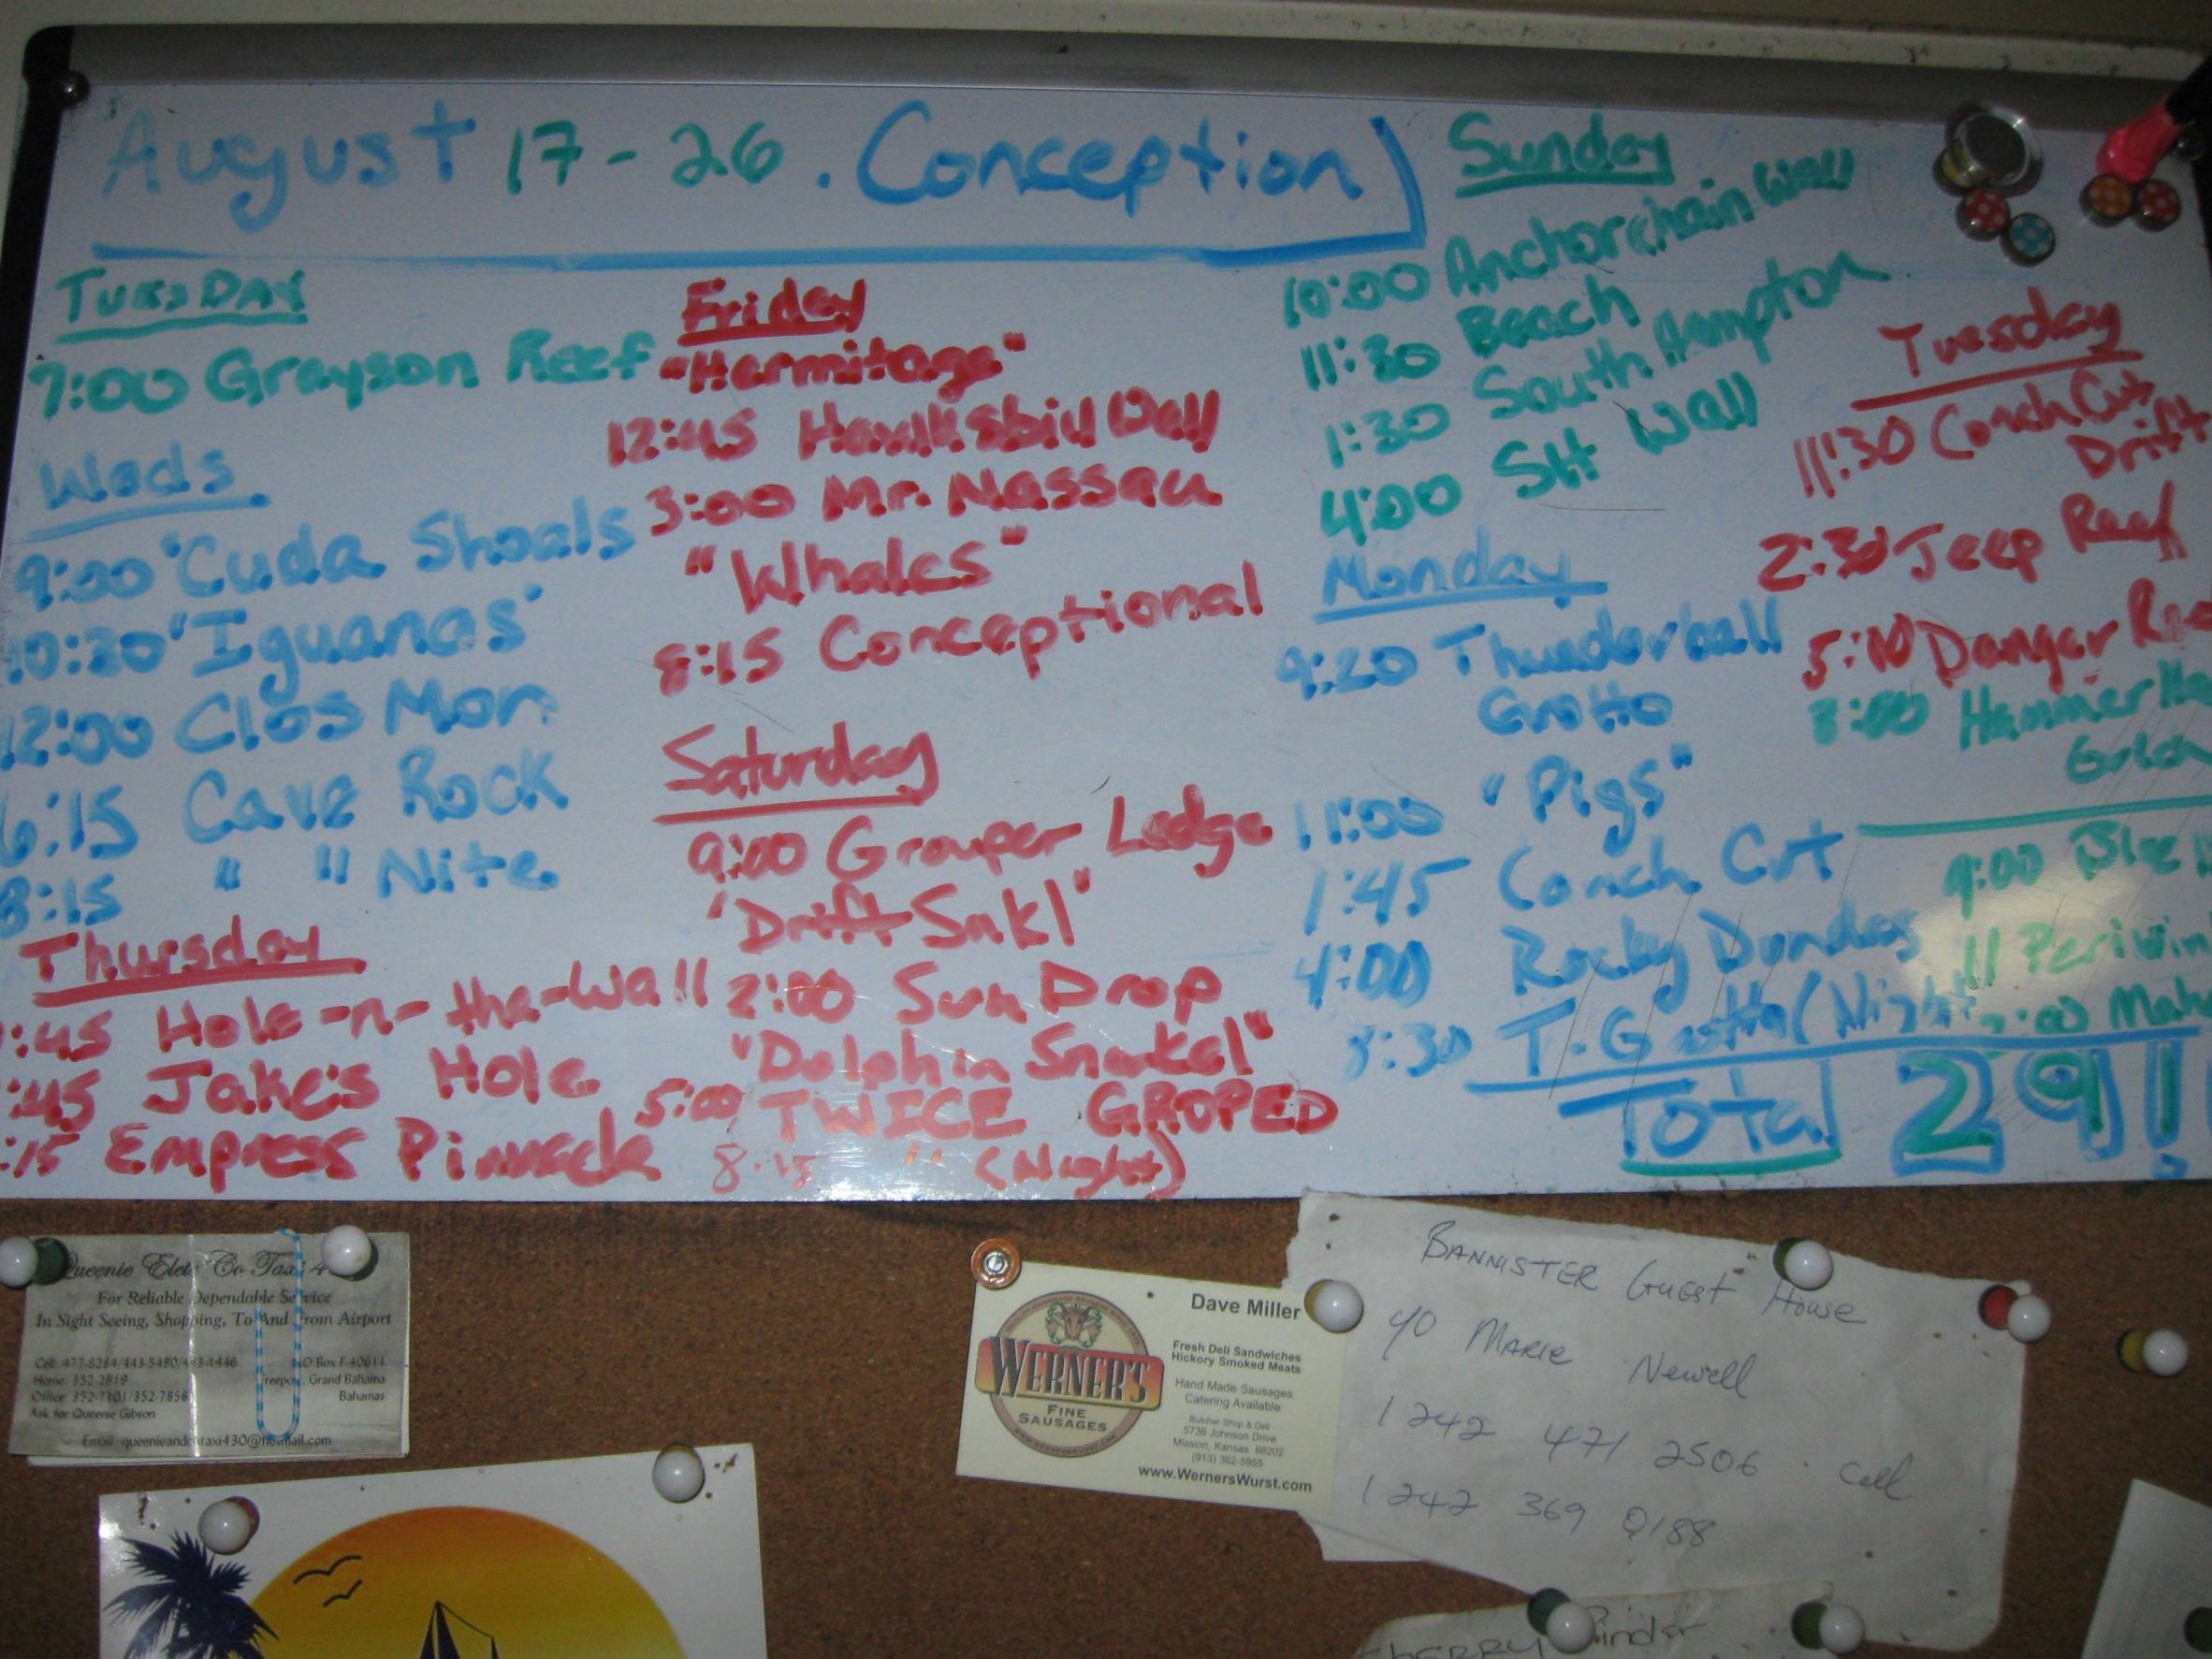 August 17-26. Conception
TUESDAY
7:00 Grayson Reef
Weds
9:00 'Cuda Shoals
10:30 'Iguanas'
12:00 Clos Mon
6:15 Cave Rock
8:15 " " Nite
Thursday
:45 Hole-n-the-Wall
:45 Jake's Hole
:15 Empress Pinnacle
Friday
"Hermitage"
12:45 Hawksbill Wall
3:00 Mr. Nassau
"Whales"
8:15 Conceptional
Saturday
9:00 Grouper Ledge
'Drift Snkl'
2:00 Sun Drop
"Dolphin Snorkel"
5:00 TWICE GROPED
8:15 " (Night)
Sunday
10:00 Anchorchain Wall
11:30 Beach
1:30 South Hampton
4:00 SH Wall
Monday
9:20 Thunderball
Grotto
11:00 "Pigs"
1:45 Conch Cut
4:00 Rocky Dundas
8:30 T. Grotto (Night
Tuesday
11:30 Conch Cut
Drift
2:30 Jeep Reef
5:10 Danger Ree
8:00 HammerHe
Gulch
9:00
11 Periwin
:00
Total 29!
Queenie Elete Co Taxi 4
For Reliable Dependable Service
In Sight Seeing, Shopping, To And From Airport
Cell: 477-8284/443-5480/443-1446
Home: 352-2819
Office: 352-7101/352-7858
Ask for Queenie Gibson
P.O Box F-40611
Freeport, Grand Bahama
Bahamas
Email:
Dave Miller
WERNER'S
FINE
SAUSAGES
Fresh Deli Sandwiches
Hickory Smoked Meats
Hand Made Sausages
Catering Available
Butcher Shop & Deli
5736 Johnson Drive
Mission, Kansas 66202
(913) 362-5955
www.WernersWurst.com
BANNISTER Guest House
c/o MARIE Newell
1 242 471 2506 . Cell
1 242 369 0188
Pinder